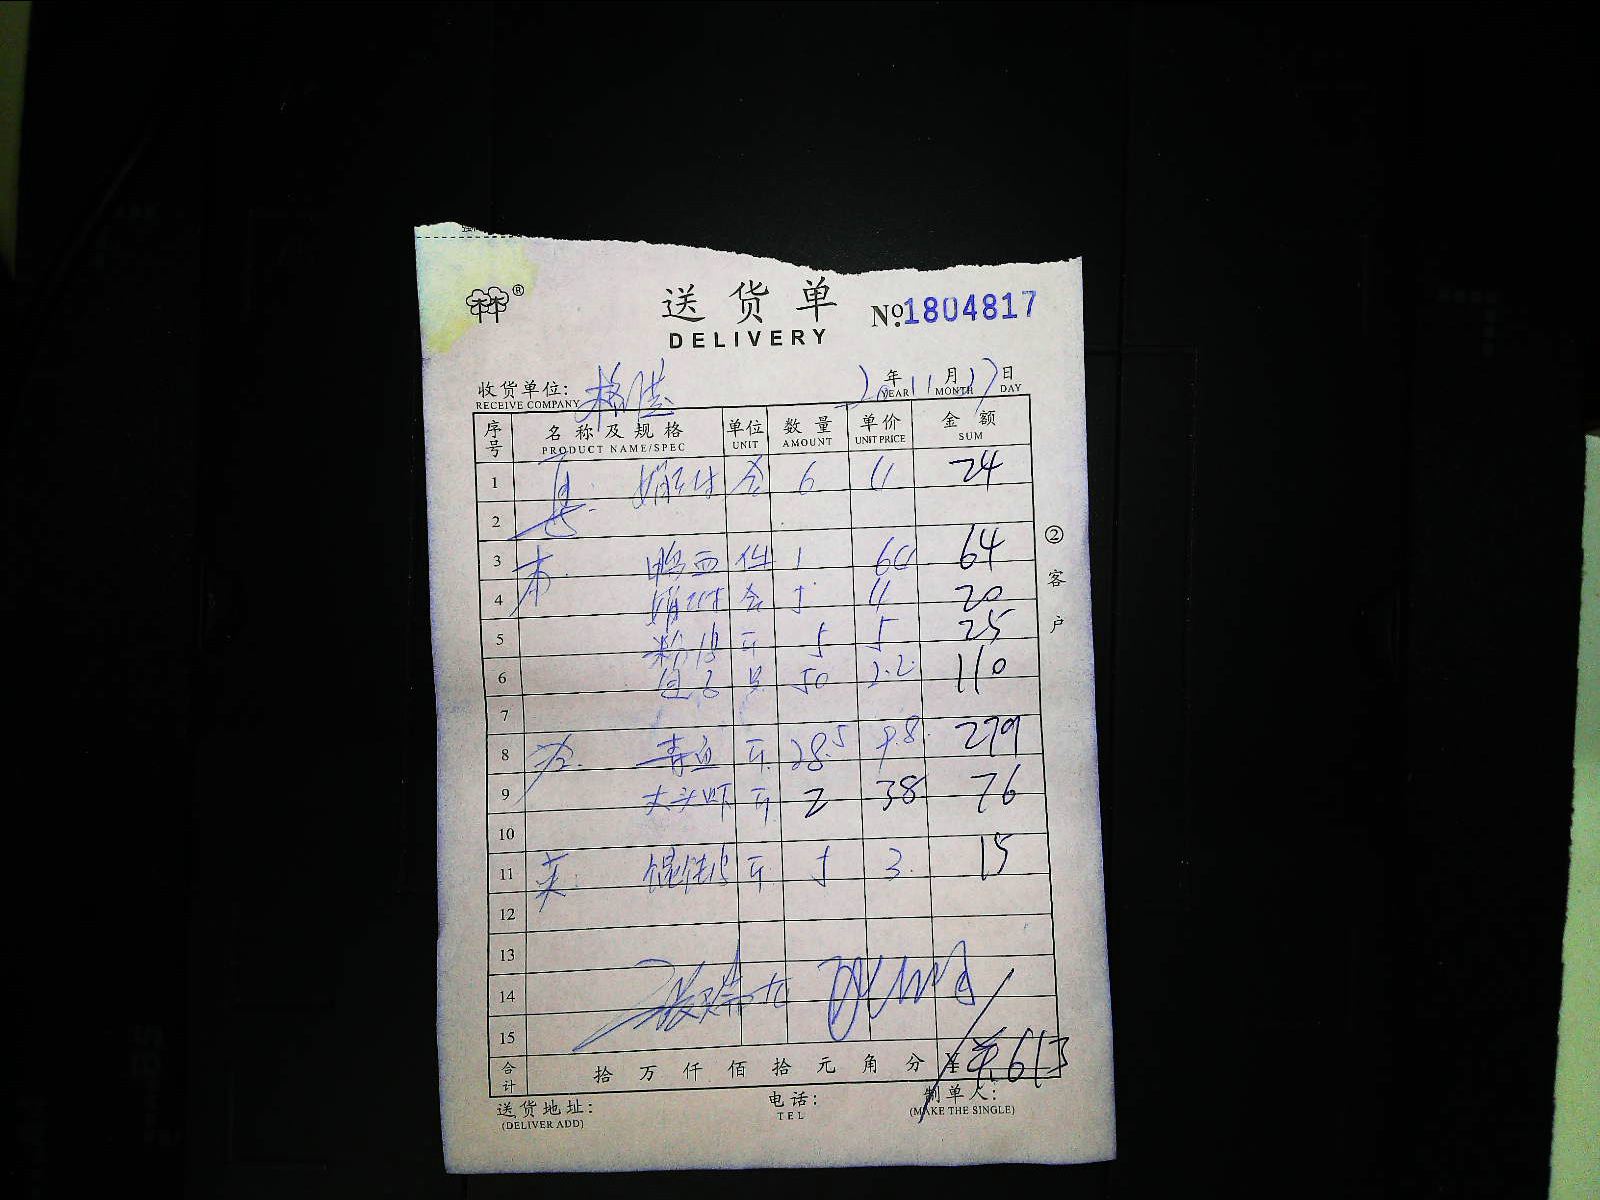 ®
送货单
DELIVERY
№1804817
收货单位:
RECEIVE COMPANY
20年11月17日
YEAR MONTH DAY
序号 名称及规格 单位 数量 单价 金额
PRODUCT NAME/SPEC UNIT AMOUNT UNIT PRICE SUM
1 6 11 24
2
3 鸭血 件 1 60 64
4 5 11 20
5 斤 5 5 25
6 包子 只 50 2.2 110
7
8 青鱼 斤 28.5 9.8 279
9 大头虾 斤 2 38 76
10
11 斤 5 3. 15
12
13
14
15
合计 拾万仟佰拾元角分 ¥ 613
送货地址:
(DELIVER ADD)
电话:
TEL
制单人:
(MAKE THE SINGLE)
②客户